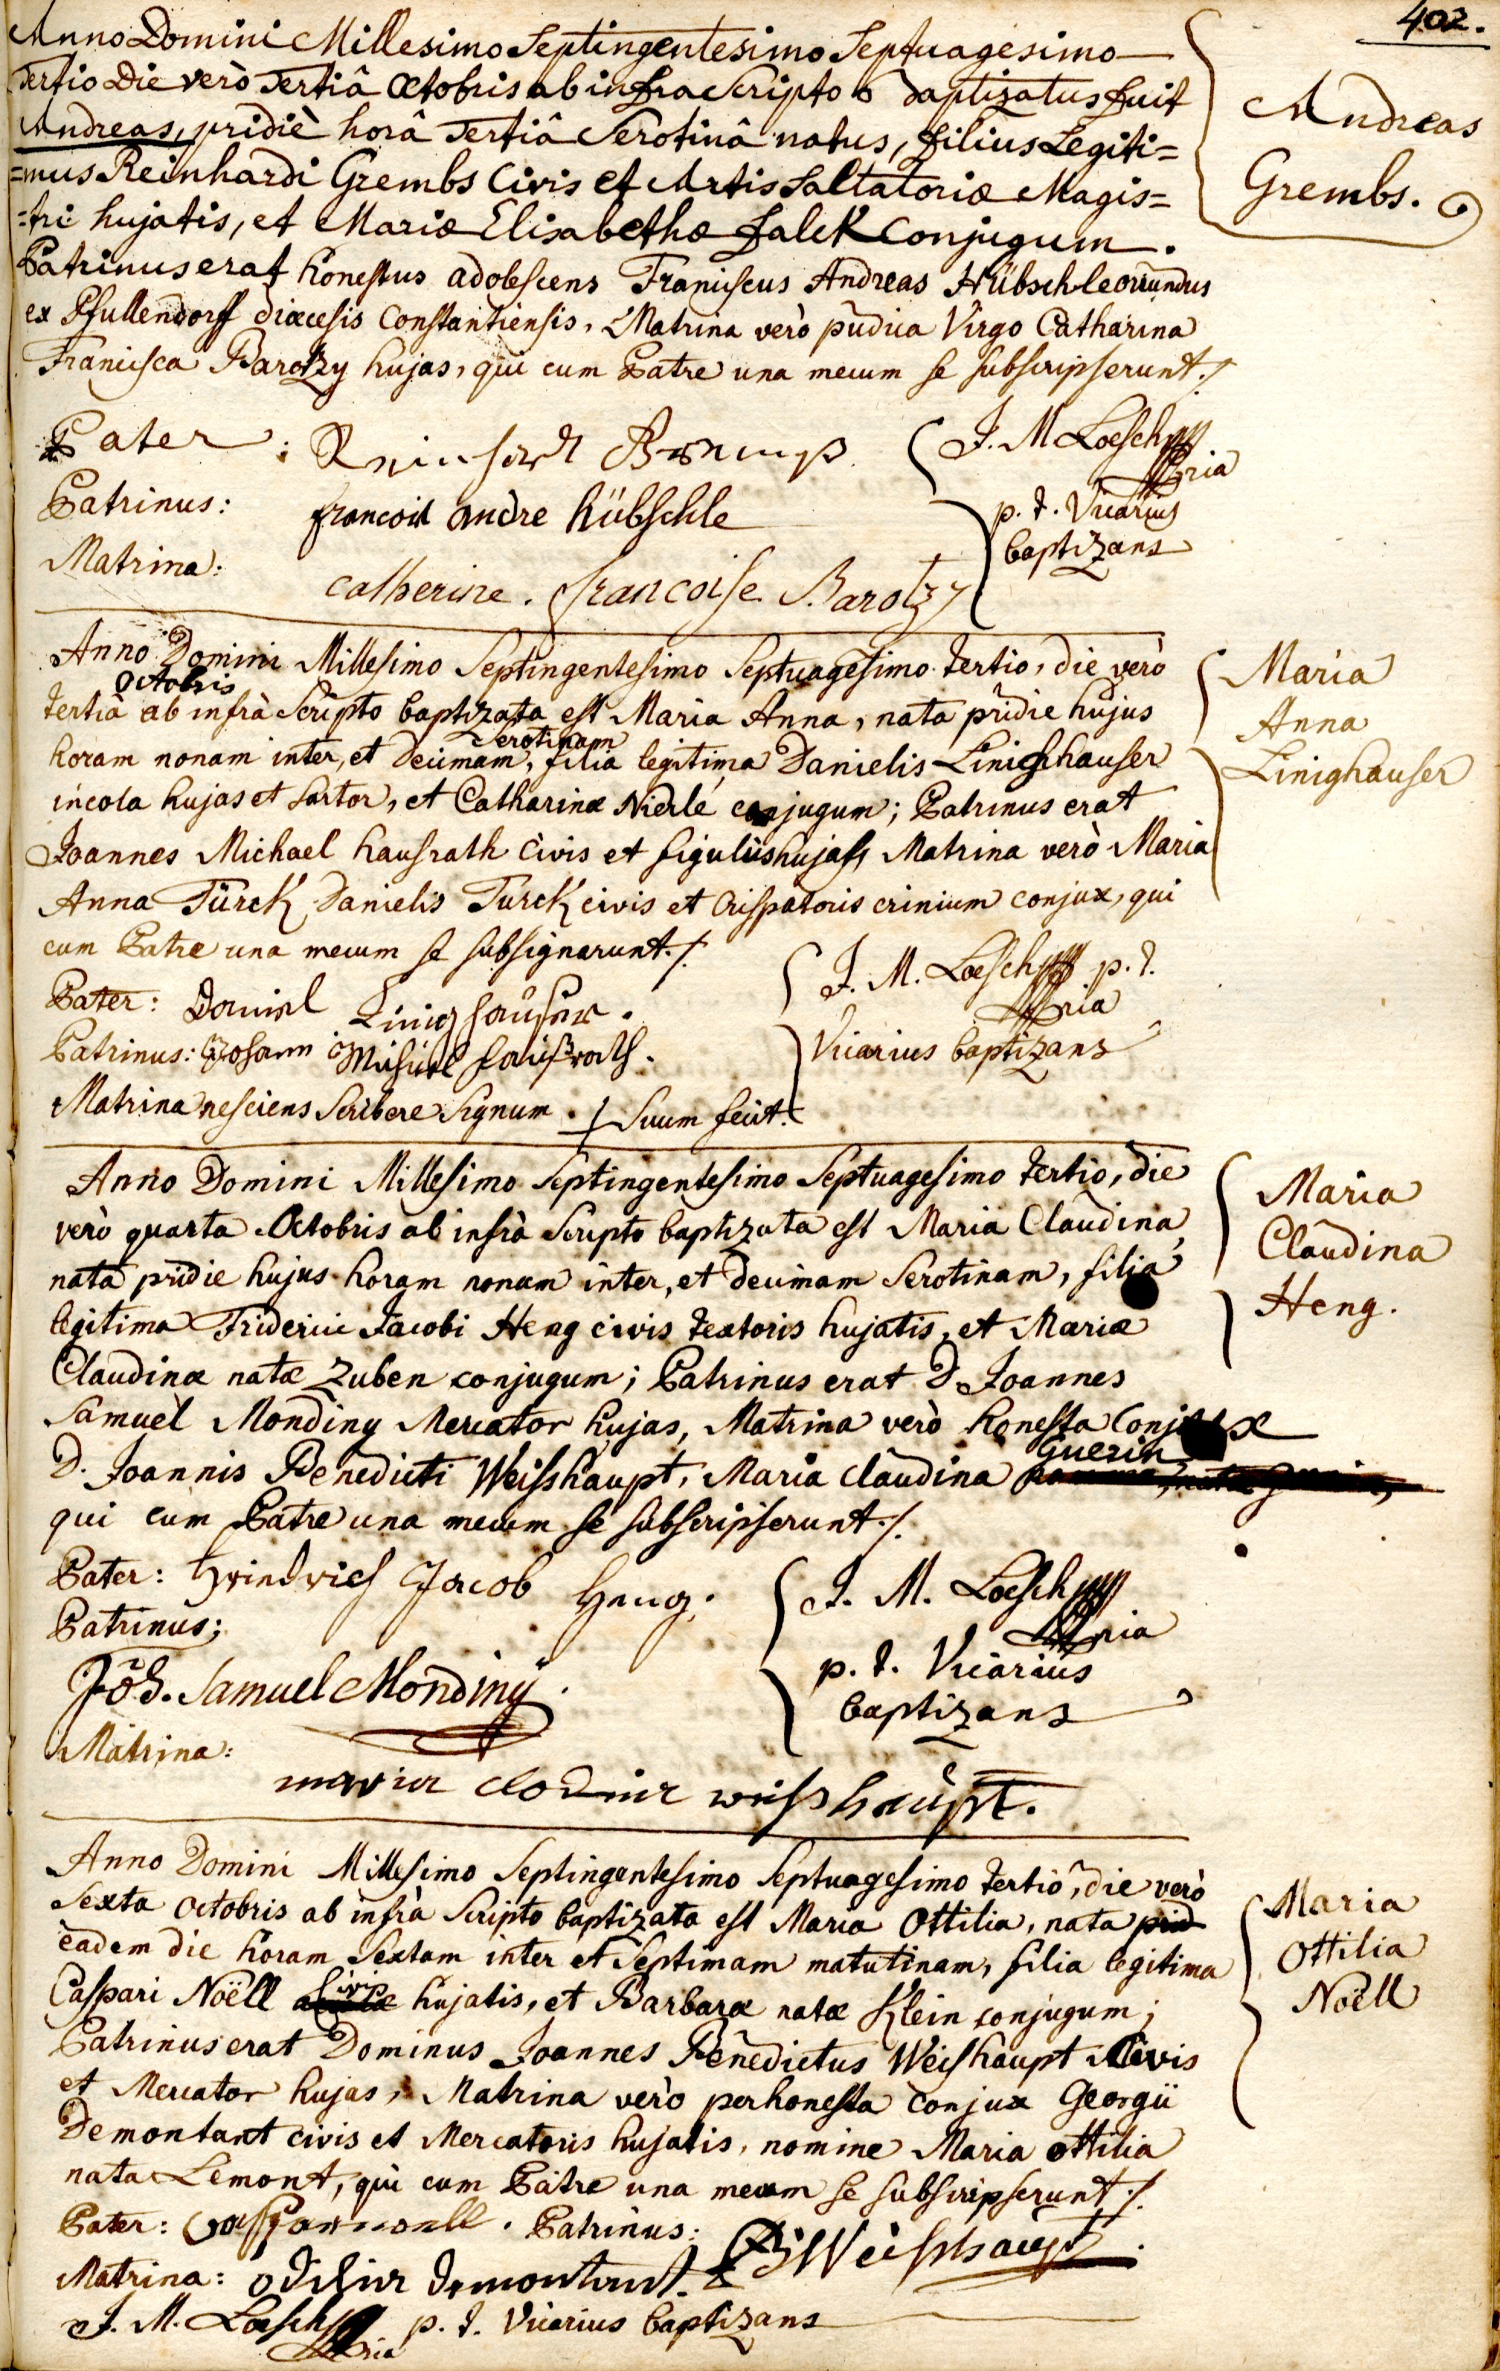 402.
Anno Domini Millesimo Septingentesimo Septuagesimo
Tertio Die verò Tertiâ Octobris ab infra Scripto baptizatus fuit
Andreas, pridiè horâ Tertiâ Serotinâ natus, filius Legiti=
=mus Reinhardi Grembs Civis et Artis Saltatoriæ Magis=
=tri hujatis, et Mariæ Elisabethæ Falck Conjugum.
Patrinus erat honestus adolescens Franciscus Andreas Hübschle oriundus
ex Pfullendorff diœcesis Constantiensis, Matrina verò pudica Virgo Catharina
Francisca Barotzy hujas, qui cum Patre una mecum se subscripserunt./.
Andreas
Grembs.
Pater: Reinhard Gremps
Patrinus: francois andre hübschle
Matrina: catherine. francoise Barotzy
J. M Loesch
mpria
p. t. Vicarius
baptizans
Anno Domini Millesimo Septingentesimo Septuagesimo tertio, die verò
Octobris
tertia ab infrà Scripto baptizata est Maria Anna, nata pridie hujus
Serotinam
horam nonam inter, et decimam, filia legitima Danielis Linighauser
incola hujas et Sartor, et Catharinæ Nierlé conjugum; Patrinus erat
Joannes Michael hausrath civis et figulus hujas, Matrina verò Maria
Anna Türck Danielis Turck civis et Crispatoris crinium conjux, qui
cum Patre una mecum se subsignarunt./.
Maria
Anna
Linighauser
Pater: Daniel Linighauser.
Patrinus: Johann Michael hausrath.
Matrina nesciens Scribere Signum . + Suum fecit.
J. M. Loesch p. t.
mpria
Vicarius baptizans
Anno Domini Millesimo Septingentesimo Septuagesimo tertio, die
verò quarta Octobris ab infrà Scripto baptizata est Maria Claudina,
nata pridie hujus horam nonam inter, et decimam Serotinam, filia
legitima Friderici Jacobi Heng civis textoris hujatis, et Mariæ
Claudinæ natæ Zuben conjugum; Patrinus erat D. Joannes
Samuel Mondiny Mercator hujas, Matrina verò honesta Conjux
Guerin
D. Joannis Benedicti Weisshaupt, Maria Claudina
qui cum Patre una mecum se subscripserunt./.
Maria
Claudina
Heng.
Pater: Jacob Heng.
Patrinus:
Joh. Samuel Mondiny.
Matrina:
maria clodina weisshaupt.
J. M. Loesch
mpria
p. t. Vicarius
baptizans
Anno Domini Millesimo Septingentesimo Septuagesimo tertio, die verò
Sexta Octobris ab infrà Scripto baptizata est Maria Ottilia, nata prid
eadem die horam Sextam inter et Septimam matutinam, filia legitima
Civis
Caspari Noëll hujatis, et Barbaræ natæ Klein conjugum;
Patrinus erat Dominus Joannes Benedictus Weishaupt Civis
et Mercator hujas, Matrina verò perhonesta conjux Georgii
Demontant civis et Mercatoris hujatis, nomine Maria Ottilia
nata Lemont, qui cum Patre una mecum se subscripserunt./.
Maria
Ottilia
Noëll
Pater: Casparnoell. Patrinus: Weisshaupt.
Matrina: odilia demontant.
J. M. Loesch p. t. Vicarius baptizans
mpria